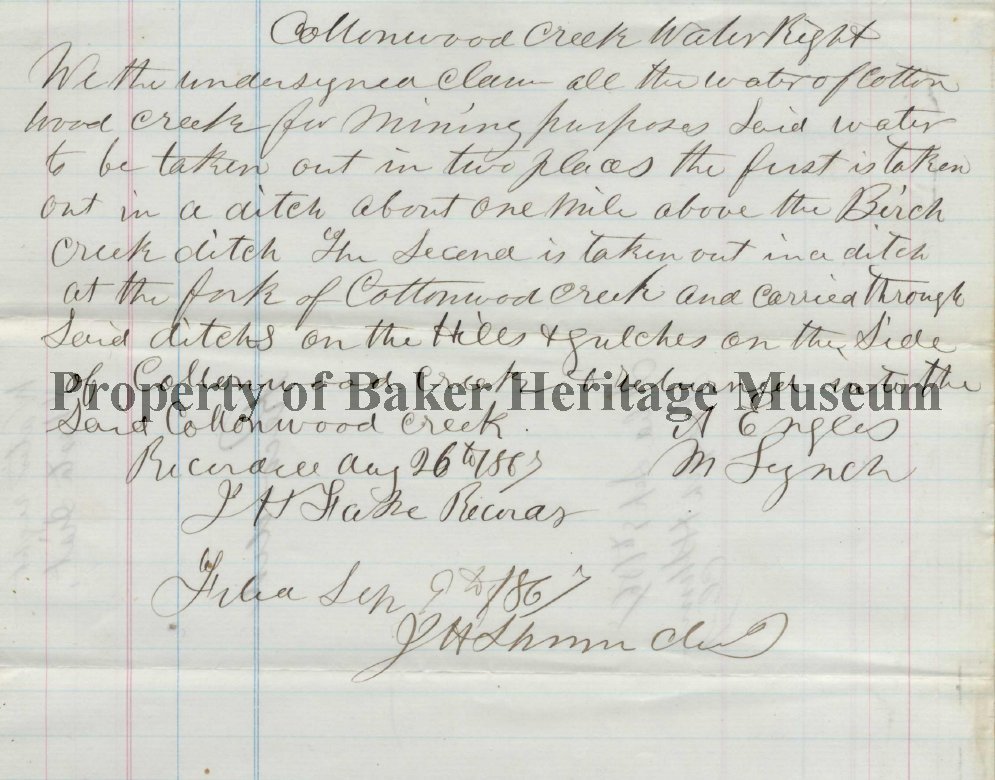 Cottonwood Creek Water Right
We the undersigned Claim all the water of Cotton
wood Creek for Mining purposes Said water
to be taken out in two places the first is taken
out in a ditch about one Mile above the Birch
Creek ditch The Second is taken out in a ditch
at the fork of Cottonwood Creek and Carried through
Said ditchs on the Hills & gulches on the Side
of Cottonwood Creek & into the
Property of Baker Heritage Museum
Said Cottonwood Creek. A Engles
Recorded Aug 26th 1867 M Lynch
J H Recorder
Filed Sep 9th 1867
J H